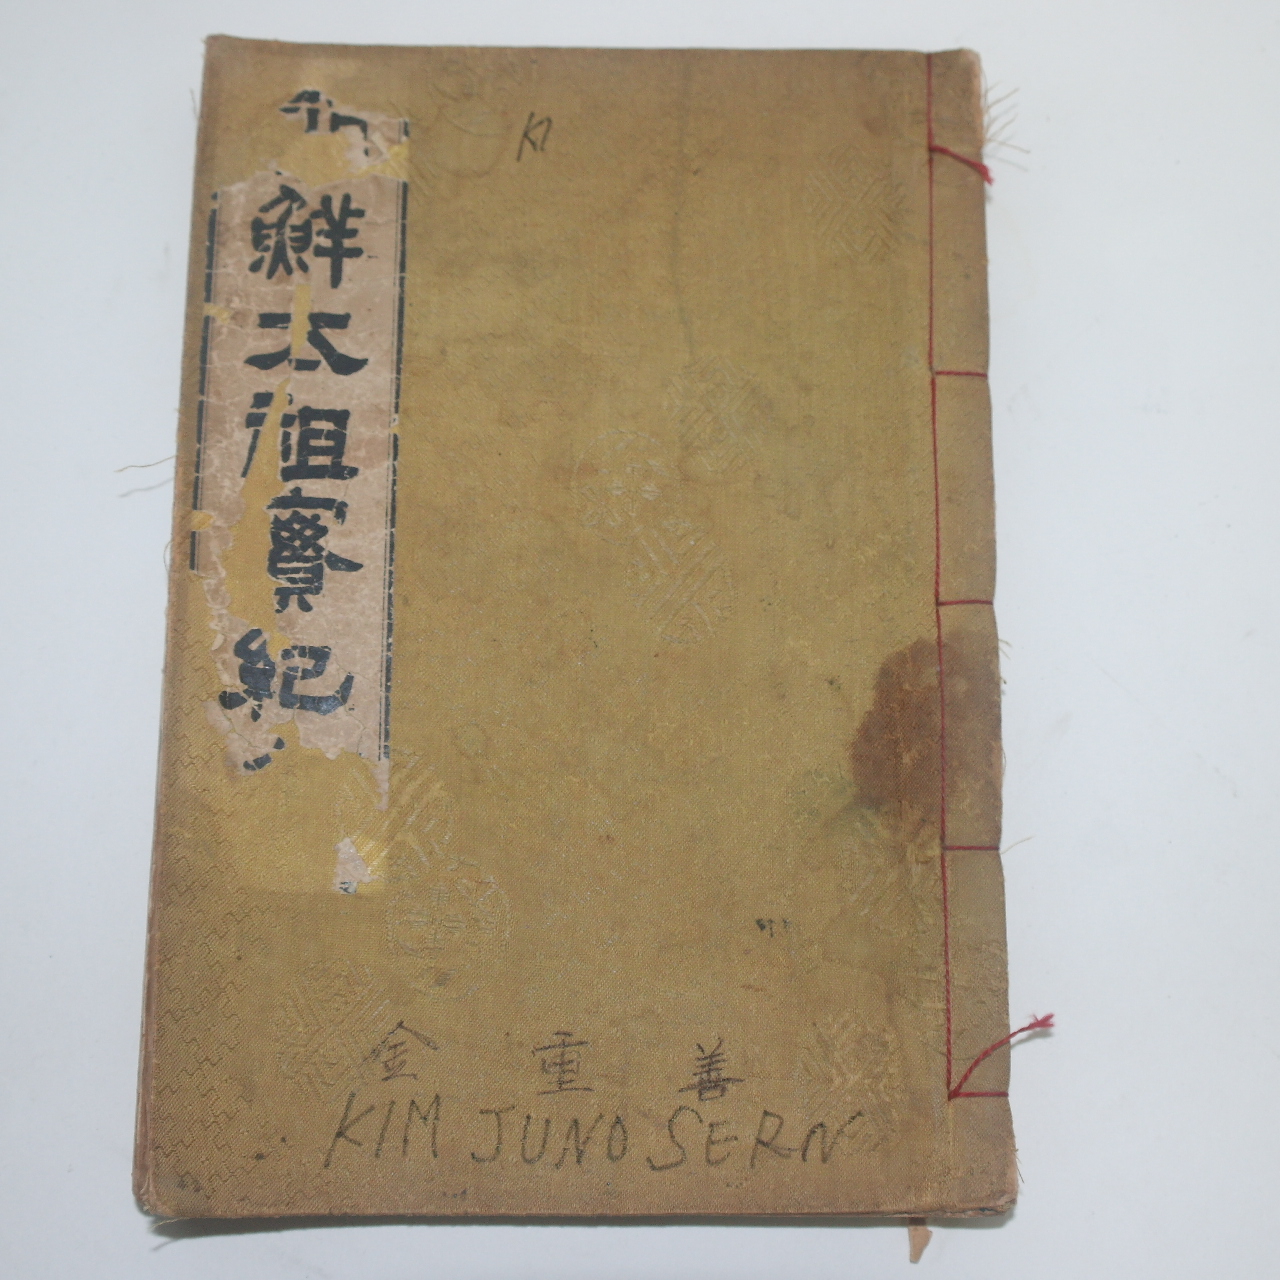 鮮太祖實紀
KI
金重善
KIM JUNO SERN